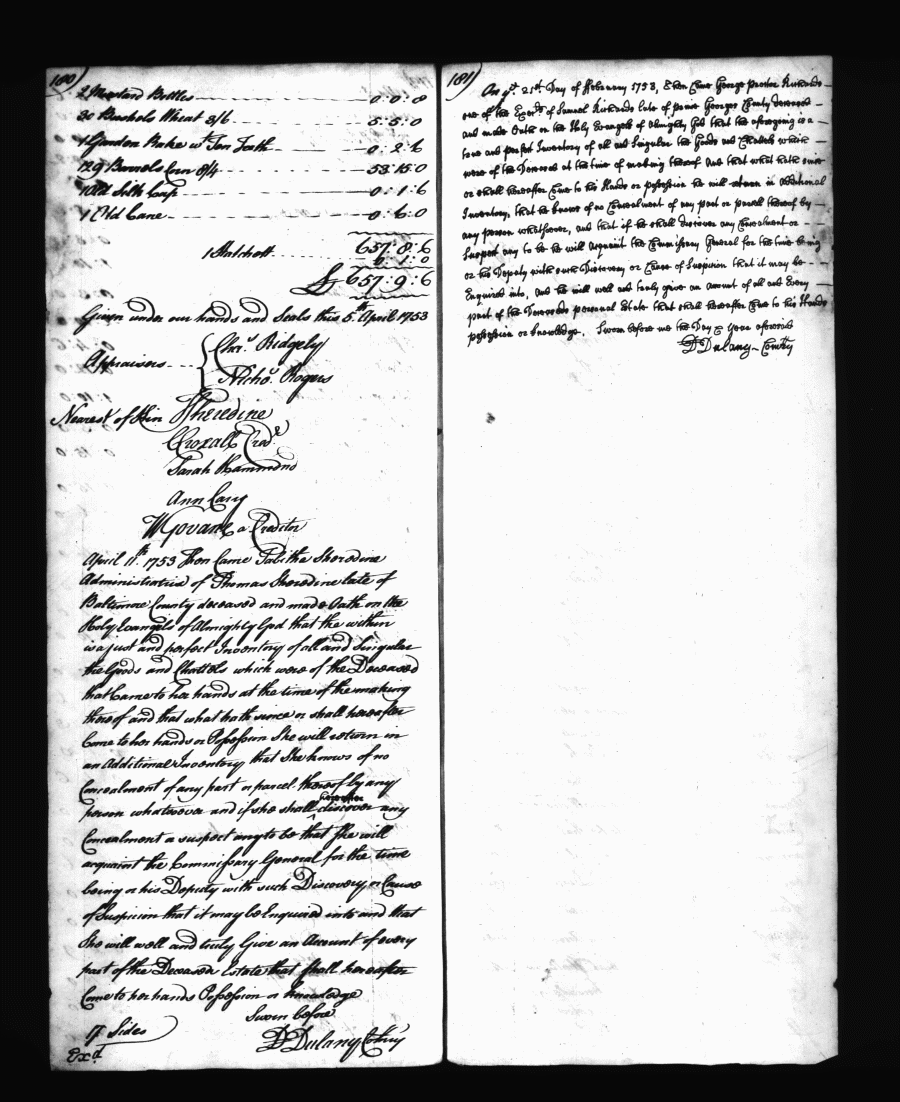 180)
2 Mustard Bottles 0:0:8
30 Bushels Wheat 3/6 5:5:0
1 Garden Rake wt. Iron Teeth 0:2:6
129 Barrels Corn 8/4 53:15:0
1 Old Silk Cap 0:1:6
1 Old Cane 0:6:0
657:8:6
1 Hatchett 0:1:0
£657:9:6
Given under our hands and Seals this 5th. April 1753
Chas. Ridgely
Appraisers
Nichos. Rogers
Nearest of Kin Sheredine
Croxall Credr.
Sarah Hammond
Ann Cary
W Govane a Creditor
April 11th. 1753 Then Came Tabitha Sheredine
Administratrix of Thomas Sheredine late of
Baltimore County deceased and made Oath on the
Holy Evangels of Almighty God that the within
is a just and perfect Inventory of all and Singular
the Goods and Chattels which were of the Deceased
that Came to her hands at the time of the making
thereof and that what hath since or shall hereafter
Come to her hands or Possession She will return in
an Additional Inventory that She knows of no
Concealment of any part or parcel thereof by any
person whatsoever and if she shall hereafter discover any
Concealment or suspect any to be that She will
acquaint the Commissary General for the time
being or his Deputy with such Discovery or Cause
of Suspicion that it may be Enquired into and that
She will well and truly Give an Account of every
part of the Deceased Estate that shall hereafter
Come to her hands Possession or knowledge
Sworn before
17 Sides
D Dulany Comry
Exd.
181)
On ye. 21st. Day of February 1753, then Came George Richards
one of the Exers. of Samuel Richards late of Prince Georges County Deceased
and made Oath on the Holy Evangels of Almighty God that the aforegoing is a
true and perfect Inventory of all and Singular the Goods and Chattels which
were of the Deceased at the time of making thereof and that what hath since
or shall hereafter Come to his Hands or possession he will return in Additional
Inventory, that he knows of no Concealment of any part or parcell thereof by
any person whatsoever, and that if he shall discover any Concealment or
Suspect any to be he will Acquaint the Commissary General for the time being
or his Deputy with such Discovery or Cause of Suspicion that it may be
Enquired into, and he will well and truly give an Amount of all and Every
part of the Deceaseds personal Estate that shall hereafter Come to his Hands
possession or knowledge. Sworn before me the Day & year aforesaid
D Dulany Comry